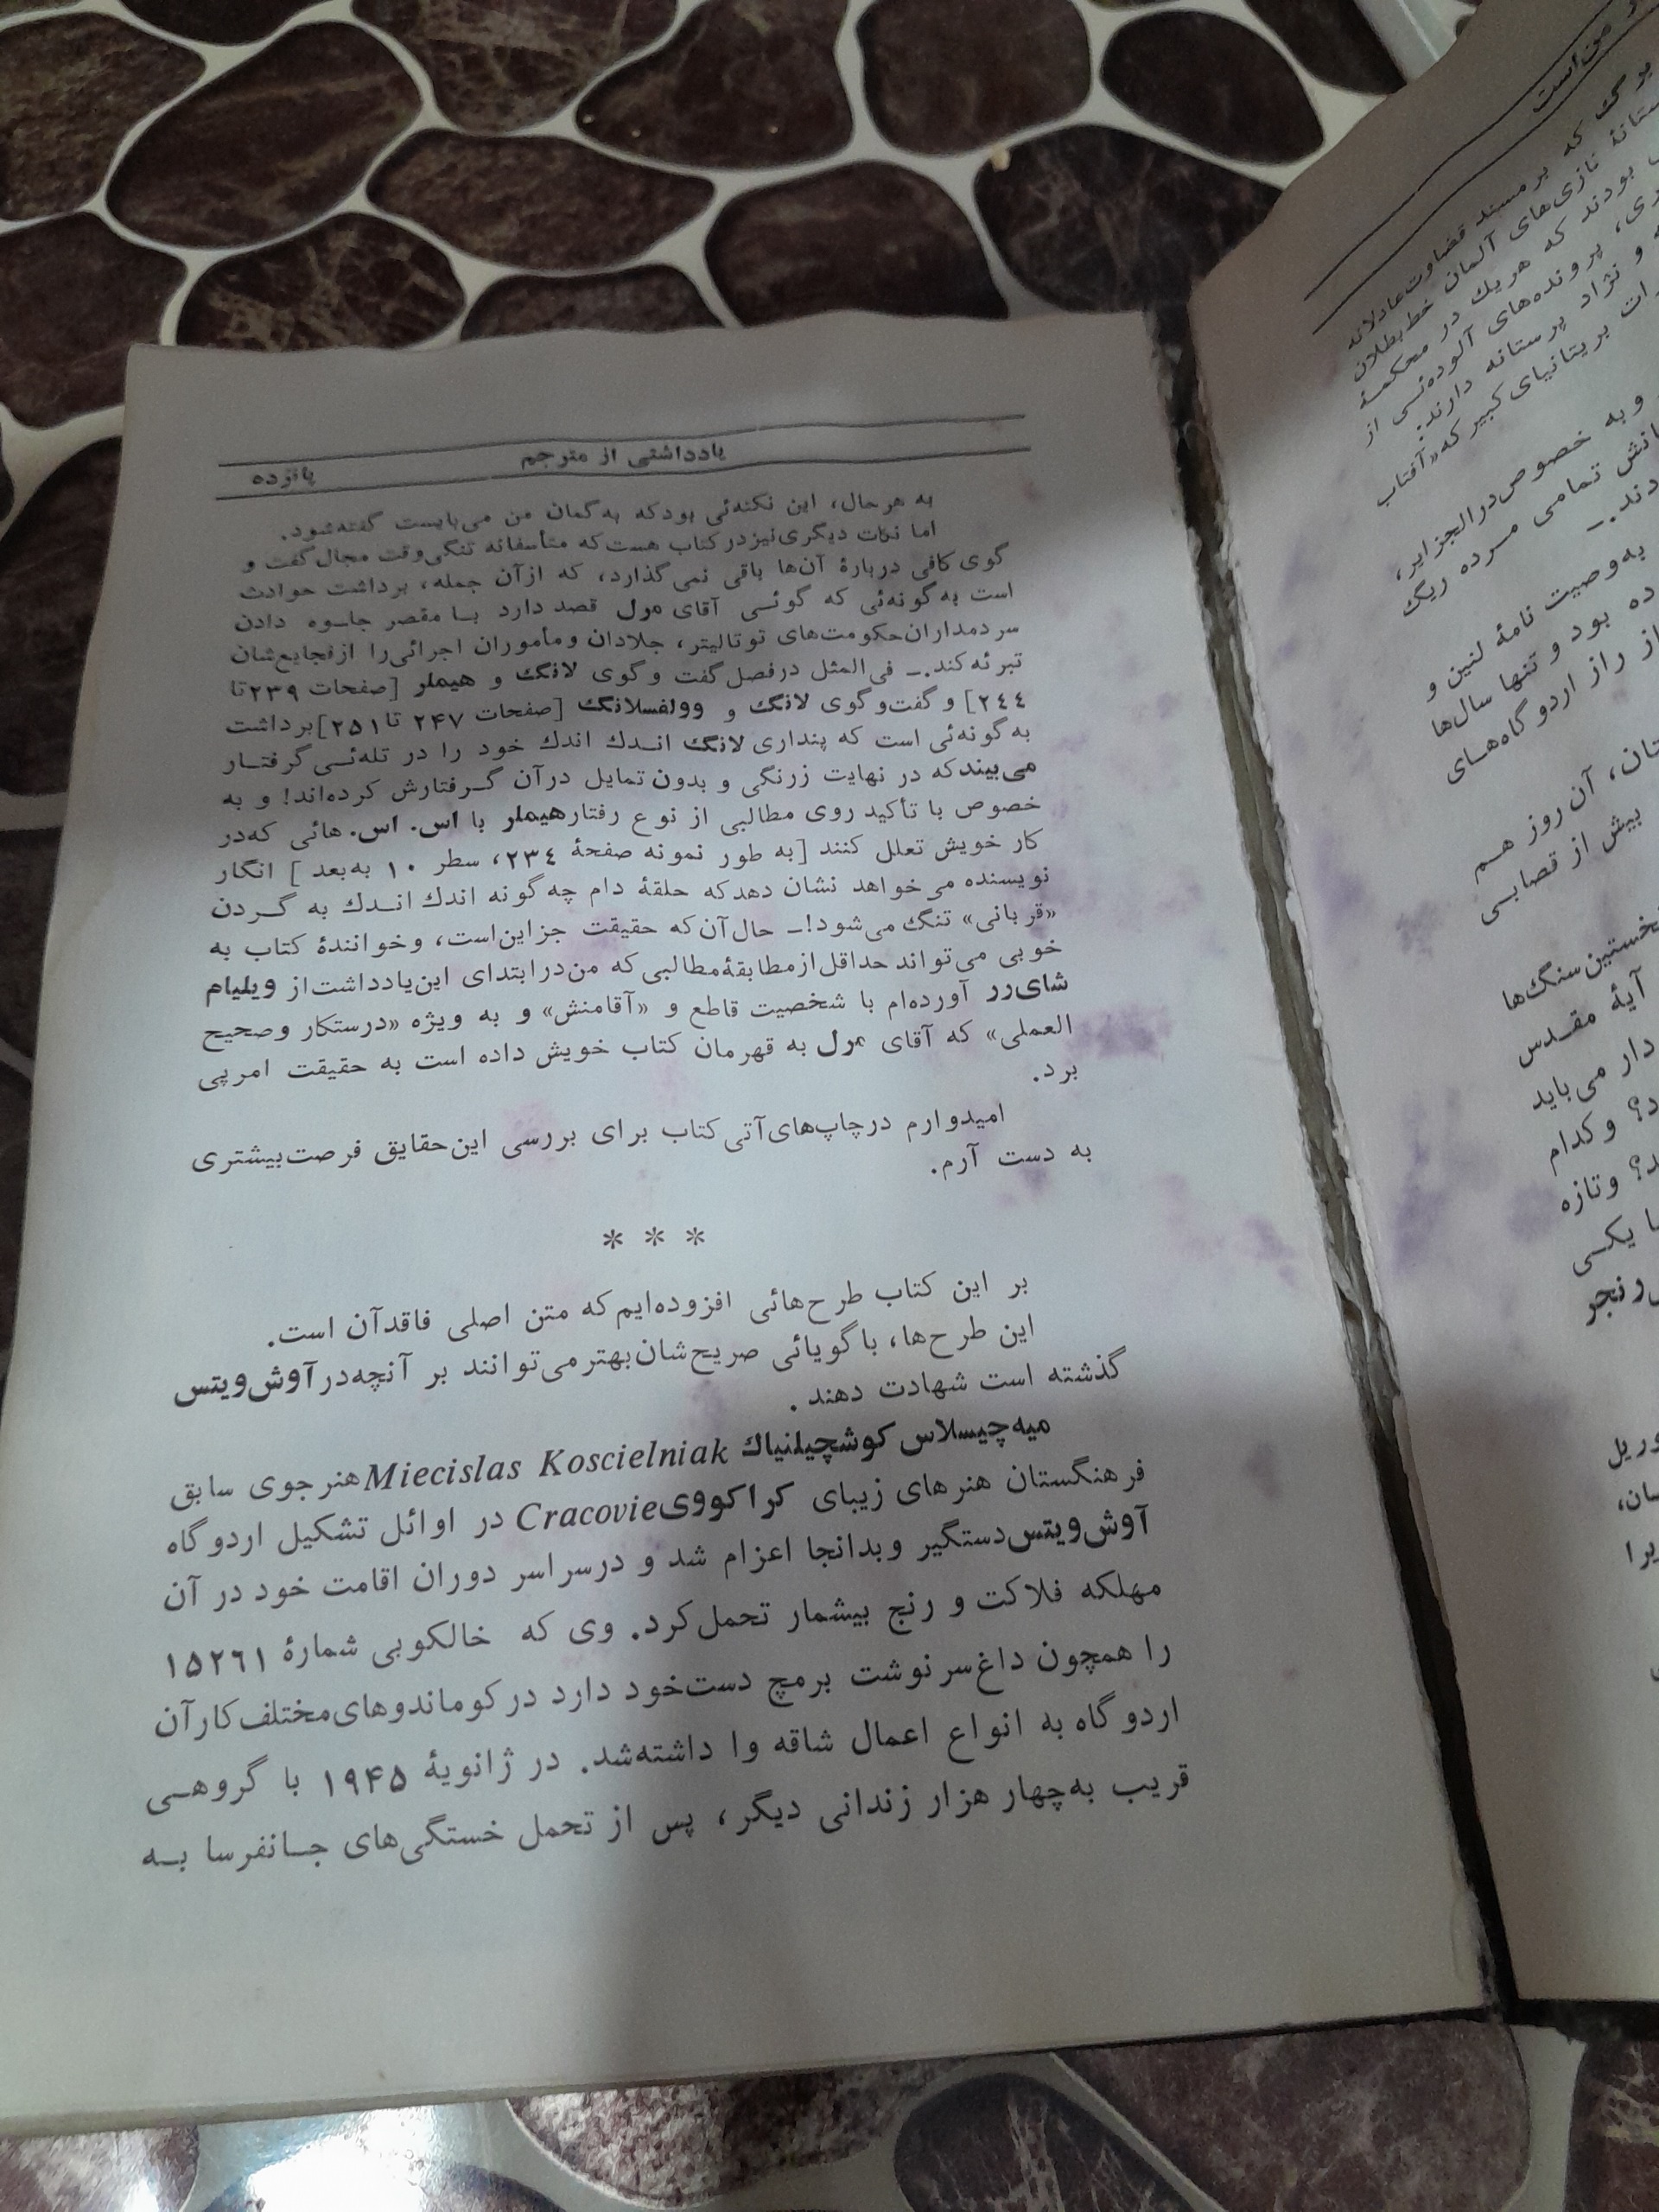 یادداشتی از مترجم
پانزده
به هر حال، این نکته‌ئی بود که به گمان من می‌بایست گفته شود.
اما نکات دیگری نیز در کتاب هست که متأسفانه تنگی وقت مجال گفت و
گوی کافی دربارهٔ آن‌ها باقی نمی‌گذارد، که از آن جمله، برداشت حوادث
است به گونه‌ئی که گوئی آقای مرل قصد دارد با مقصر جلوه دادن
سردمداران حکومت‌های توتالیتر، جلادان و مأموران اجرائی را از فجایع‌شان
تبرئه کند.ــ فی‌المثل در فصل گفت و گوی لانگ و هیملر [صفحات ۲۳۹ تا
۲۴۴] و گفت‌و گوی لانگ و وولفسلانگ [صفحات ۲۴۷ تا ۲۵۱] برداشت
به گونه‌ئی است که پنداری لانگ اندك اندك خود را در تله‌ئی گرفتار
می‌بیند که در نهایت زرنگی و بدون تمایل در آن گرفتارش کرده‌اند! و به
خصوص با تأکید روی مطالبی از نوع رفتار هیملر با اس. اس. هائی که در
کار خویش تعلل کنند [به طور نمونه صفحهٔ ۲۳٤، سطر ۱۰ به‌بعد] انگار
نویسنده می‌خواهد نشان دهد که حلقهٔ دام چه گونه اندك اندك به گردن
«قربانی» تنگ می‌شود!ــ حال آن که حقیقت جز این است، و خوانندهٔ کتاب به
خوبی می‌تواند حداقل از مطابقهٔ مطالبی که من در ابتدای این یادداشت از ویلیام
شای‌رر آورده‌ام با شخصیت قاطع و «آقامنش» و به ویژه «درستکار و صحیح
العملی» که آقای مرل به قهرمان کتاب خویش داده است به حقیقت امر پی
برد.
امیدوارم در چاپ‌های آتی کتاب برای بررسی این حقایق فرصت بیشتری
به دست آرم.
* * *
بر این کتاب طرح‌هائی افزوده‌ایم که متن اصلی فاقد آن است.
این طرح‌ها، با گویائی صریح‌شان بهتر می‌توانند بر آنچه در آوش‌ویتس
گذشته است شهادت دهند.
میه‌چیسلاس کوشچیلنیاك Miecislas Koscielniak هنرجوی سابق
فرهنگستان هنرهای زیبای کراکووی Cracovie در اوائل تشکیل اردوگاه
آوش‌ویتس دستگیر و بدانجا اعزام شد و در سراسر دوران اقامت خود در آن
مهلکه فلاکت و رنج بیشمار تحمل کرد. وی که خالکوبی شمارهٔ ۱۵۲٦۱
را همچون داغ سرنوشت بر مچ دست خود دارد در کوماندوهای مختلف کار آن
اردوگاه به انواع اعمال شاقه وا داشته شد. در ژانویهٔ ۱۹۴۵ با گروهی
قریب به چهار هزار زندانی دیگر، پس از تحمل خستگی‌های جانفرسا به
من است
که بر مسند قضاوت عادلانه
نازی‌های آلمان خط بطلان
بودند که هریك در محکمهٔ
پرونده‌های آلوده‌ئی از
و نژاد پرستانه دارند:
بریتانیای کبیر که «آفتاب
و به خصوص در الجزایر،
تمامی مرده ریگ
به وصیت نامهٔ لنین و
بود و تنها سال‌ها
از راز اردوگاه‌های
آن روز هم
بیش از قصابی
نخستین سنگ‌ها
آیهٔ مقدس
دار می‌باید
و کدام
و تازه
یکی